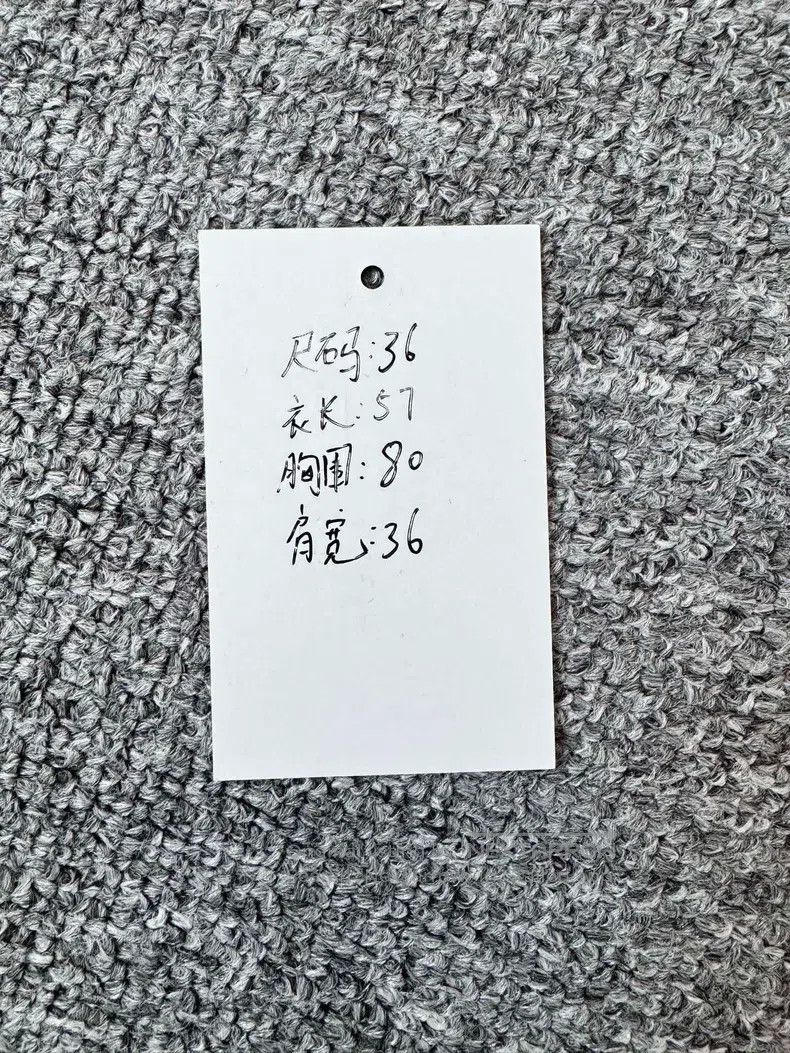 尺码:36
衣长:57
胸围:80
肩宽:36